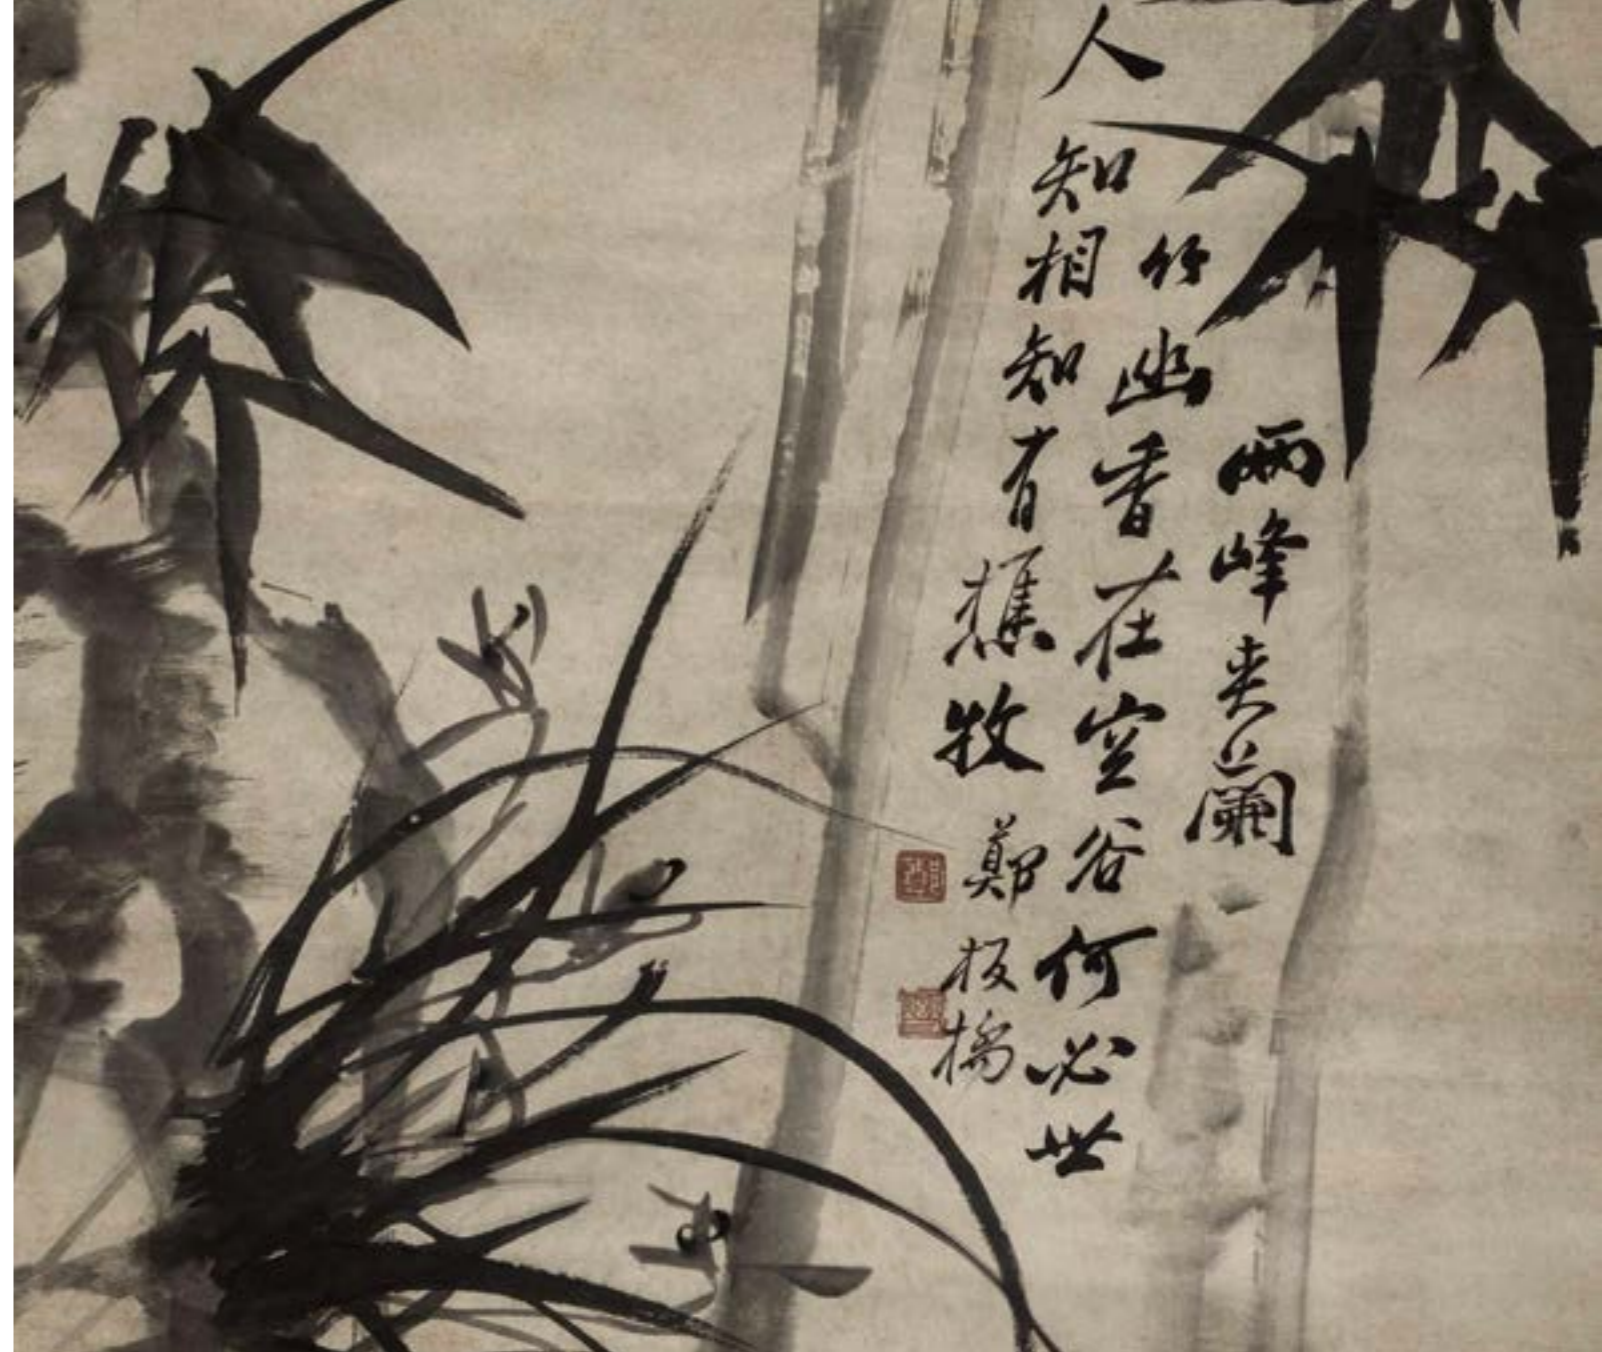 兩峰夾蘭
竹幽香在空谷何必世
人知相知有樵牧鄭板橋